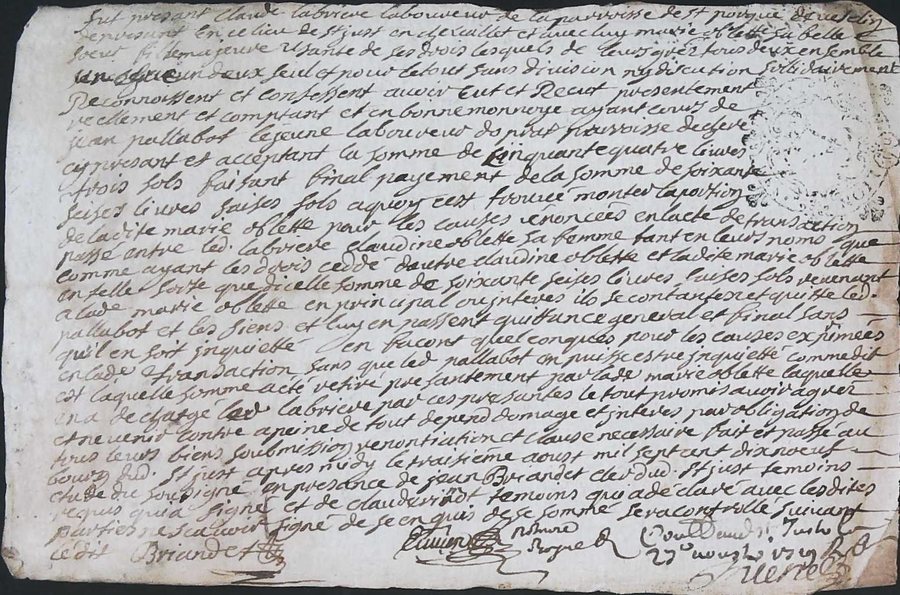 fut presant Claude labriere laboureur de la parroisse de st porque de uestelin
represant En ce lieu de St just en chevallet et avec luy marie oblette sa belle
soeur fil demajeure Usante de ses drois lesquels de leurs grés tous deux ensemble
un deux seul et pour le tout sans division ny discution sollidairement
Reconnoissent et confessent avoir Eut et Receut presentement
reellement et comptant et en bonne monnoye ayant cours de
jean pallabot le jeune laboureur parroisse de chere
cy presant et acceptant la somme de Cinquante quatre livres
trois sols faisant final payement de la somme de soixante
saises livres saises sols a quoy c'est trouvé monter la portion
de ladite marie oblette pour les causes enoncées en lacte de transaction
passé entre led. labriere Claudine oblette sa femme tant en leurs noms que
comme ayant les drois ceddé dautre claudine oblette et ladite marie oblette
en telle sorte que dicelle somme de soixante saises livres saises sols revenant
a lade marie oblette en principal ou interes ils se contantent et quitte led.
pallabot et les siens et luy en passent quittance general et final sans
qu'il en soit jnquietté en facons quelconques pour les causes exprimées
en lade transaction sans que led pallabot en puisse estre jnquietté comme dit
est laquelle somme a eté retiré presantement par lade marie oblette laquelle
en a decharge led labriere par ces presantes le tout promis avoir agreé
et ne venir contre a peine de tout depend domage et jnteres par obligation de
tous leurs biens soubmission renontiation et clause necessaire fait et passé au
bourg dud. St just apres midy le traisieme aoust mil sept cent dix neuf
etude du sousigné en presance de jean Briandet clerc dud. St just temoins
requis qui a signé et de claude temoins qui a declaré avec lesdites
parties ne scavoir signé de ce enquis de se somme sera controllé suivant
ledit Briandet notaire
Royal Coullé aud st Just le
27e aoust 1719